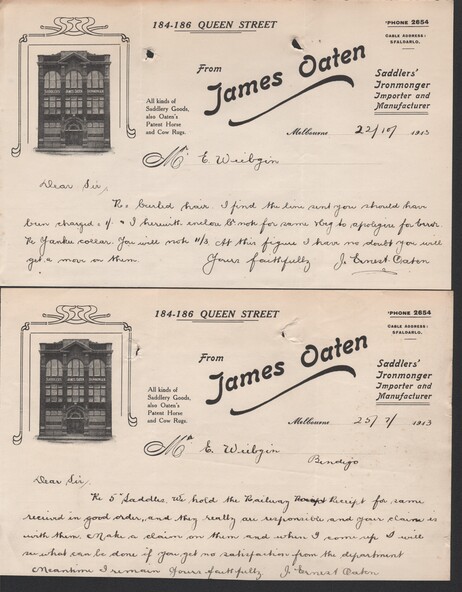 184-186 QUEEN STREET
'PHONE 2654
CABLE ADDRESS:
SPALDARLO.
From
James Oaten
Saddlers'
Ironmonger
Importer and
Manufacturer
All kinds of
Saddlery Goods,
also Oaten's
Patent Horse
and Cow Rugs.
Melbourne 22/10/ 1913
Mr E. Wiebgin
Dear Sir,
Re Curled hair. I find the line sent you should have
been charged I herewith enclose note for same & beg to apologise for error.
Re Yankee collar. You will note 11/3. At this figure I have no doubt you will
get a move on them. Yours faithfully J. Ernest Oaten
184-186 QUEEN STREET
'PHONE 2654
CABLE ADDRESS:
SPALDARLO.
From
James Oaten
Saddlers'
Ironmonger
Importer and
Manufacturer
All kinds of
Saddlery Goods,
also Oaten's
Patent Horse
and Cow Rugs.
Melbourne 25/7/ 1913
Mr E. Wiebgin
Bendigo
Dear Sir,
Re 5 Saddles. We hold the Railway Receipt for same
received in good order, and they really are responsible and your claim is
with them. Make a claim on them and when I come up I will
see what can be done if you get no satisfaction from the department
Meantime I remain Yours faithfully J. Ernest Oaten